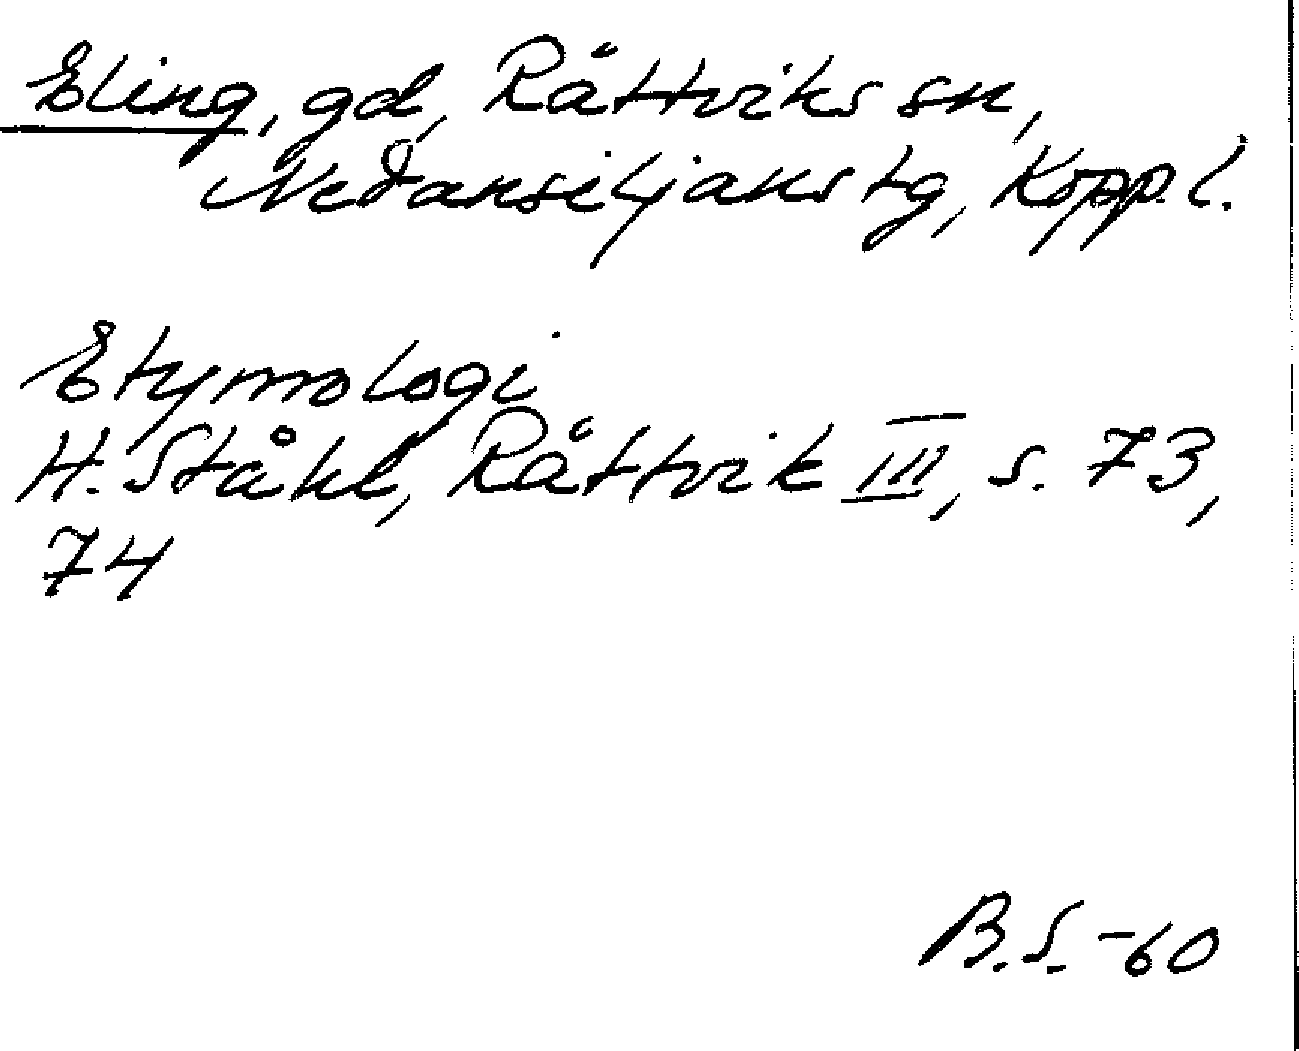 Eling, gd, Rättviks sn,
Nedansiljans tg, Kopp. l.
Etymologi
H. Ståhl, Rättvik III, s. 73,
74
B.S. -60